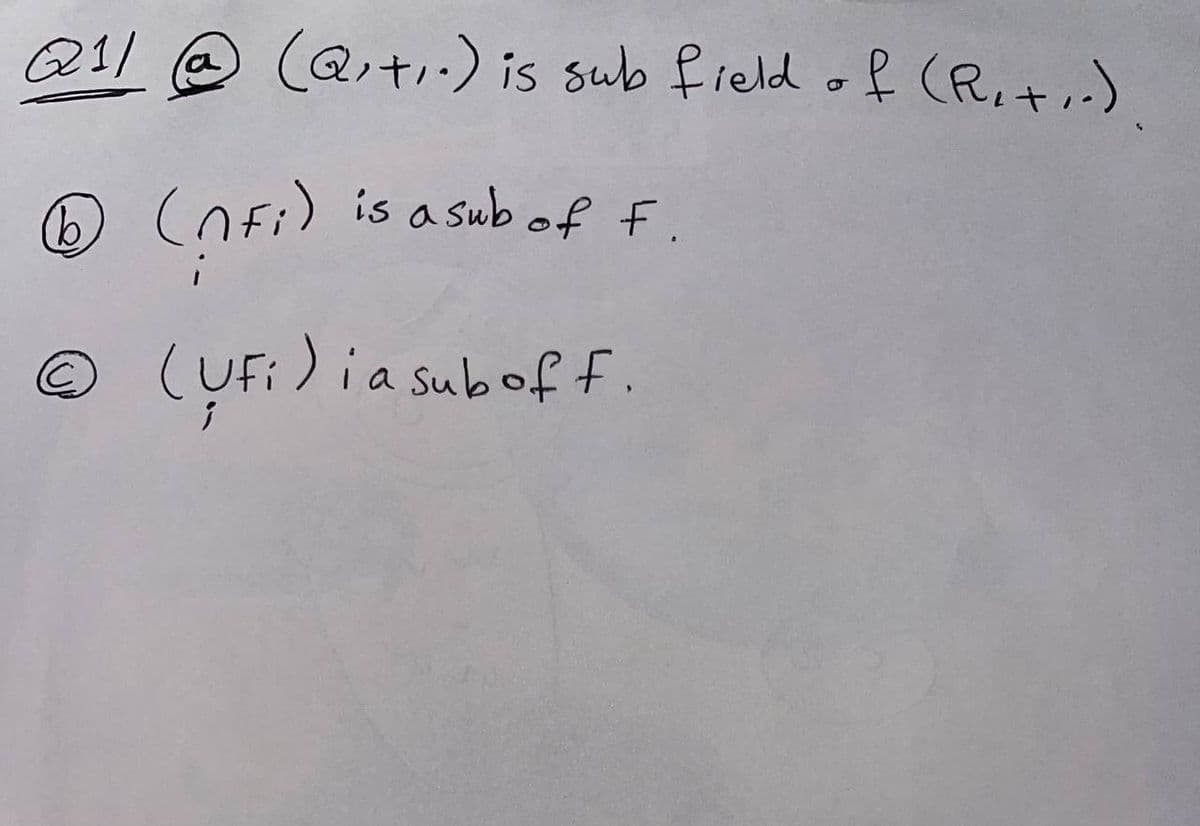 Q1/ ⓐ (Q,+,.) is sub field of (R,+,.).
ⓑ (∩Fi) is a sub of F.
i
ⓒ (UFi) i a sub of F.
i